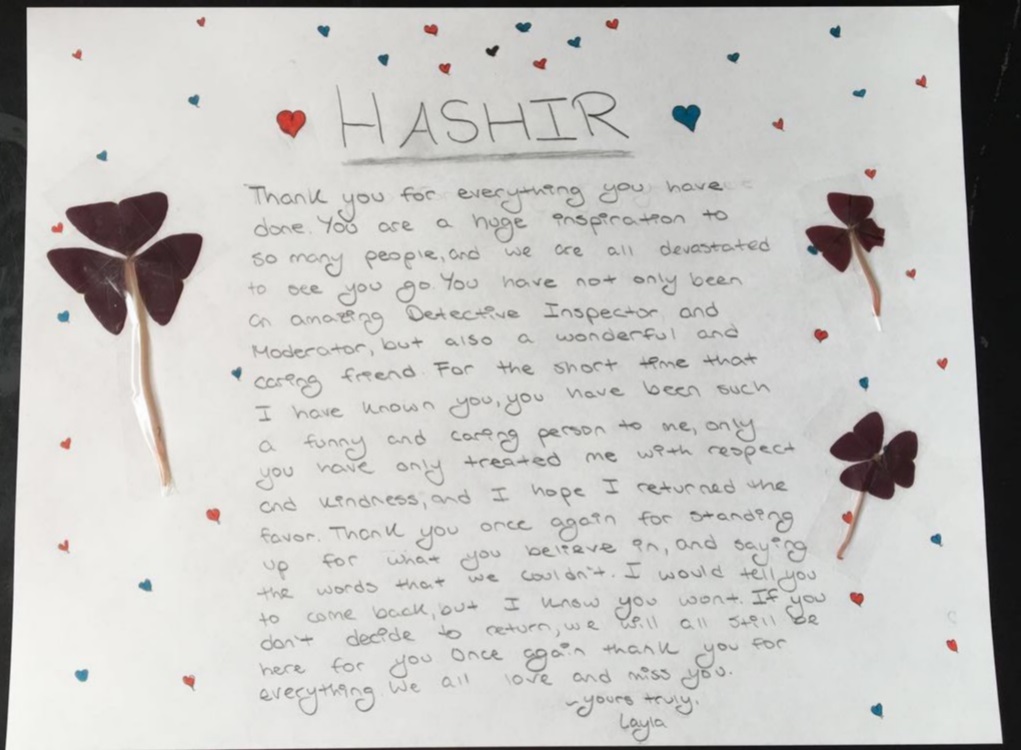 HASHIR
Thank you for everything you have
done. You are a huge inspiration to
so many people, and we are all devastated
to see you go. You have not only been
an amazing Detective Inspector and
Moderator, but also a wonderful and
caring friend. For the short time that
I have known you, you have been such
a funny and caring person to me, only
you have only treated me with respect
and kindness, and I hope I returned the
favor. Thank you once again for standing
up for what you believe in, and saying
the words that we couldn't. I would tell you
to come back, but I know you wont. If you
don't decide to return, we will all still be
here for you. Once again thank you for
everything. We all love and miss you.
~yours truly,
Layla